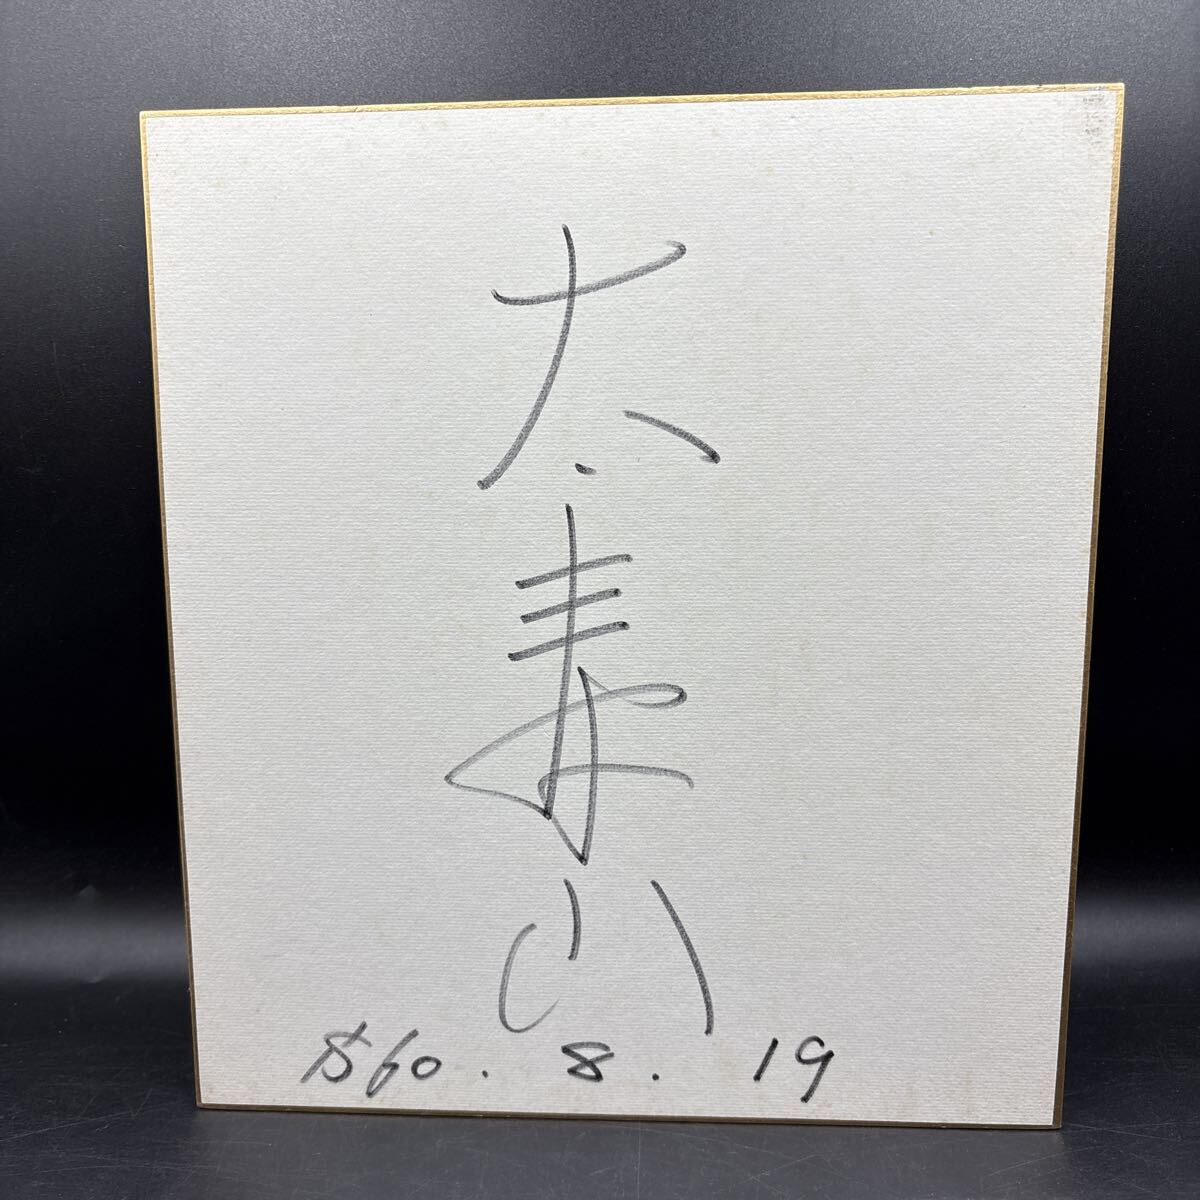 太寿山
S60.8.19